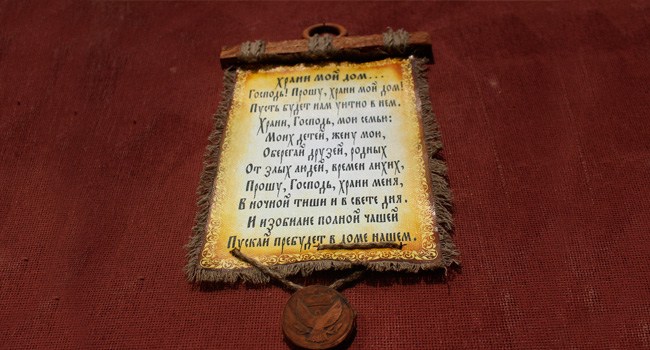 Храни мой дом...
Господь! Прошу, храни мой дом!
Пусть будет нам уютно в нем.
Храни, Господь, мои семьи:
Моих детей, жену мои,
Оберегай друзей, родных
От злых людей, времен лихих,
Прошу, Господь, храни меня,
В ночной тиши и в свете дня.
И изобилие полной чашей
Пускай пребудет в доме нашем.